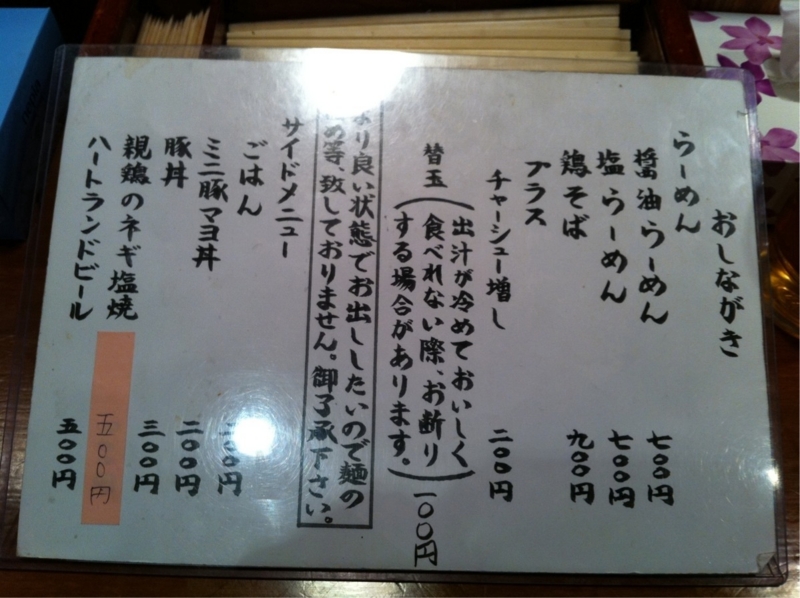 おしながき
らーめん
醤油らーめん 七〇〇円
塩らーめん 七〇〇円
鶏そば 九〇〇円
プラス
チャーシュー増し 二〇〇円
替玉(出汁が冷めておいしく
食べれない際、お断り
する場合があります。) 一〇〇円
より良い状態でお出ししたいので麺の
め等、致しておりません。御了承下さい。
サイドメニュー
ごはん
ミニ豚マヨ丼 二〇〇円
豚丼 三〇〇円
親鶏のネギ塩焼 五〇〇円
ハートランドビール 五〇〇円